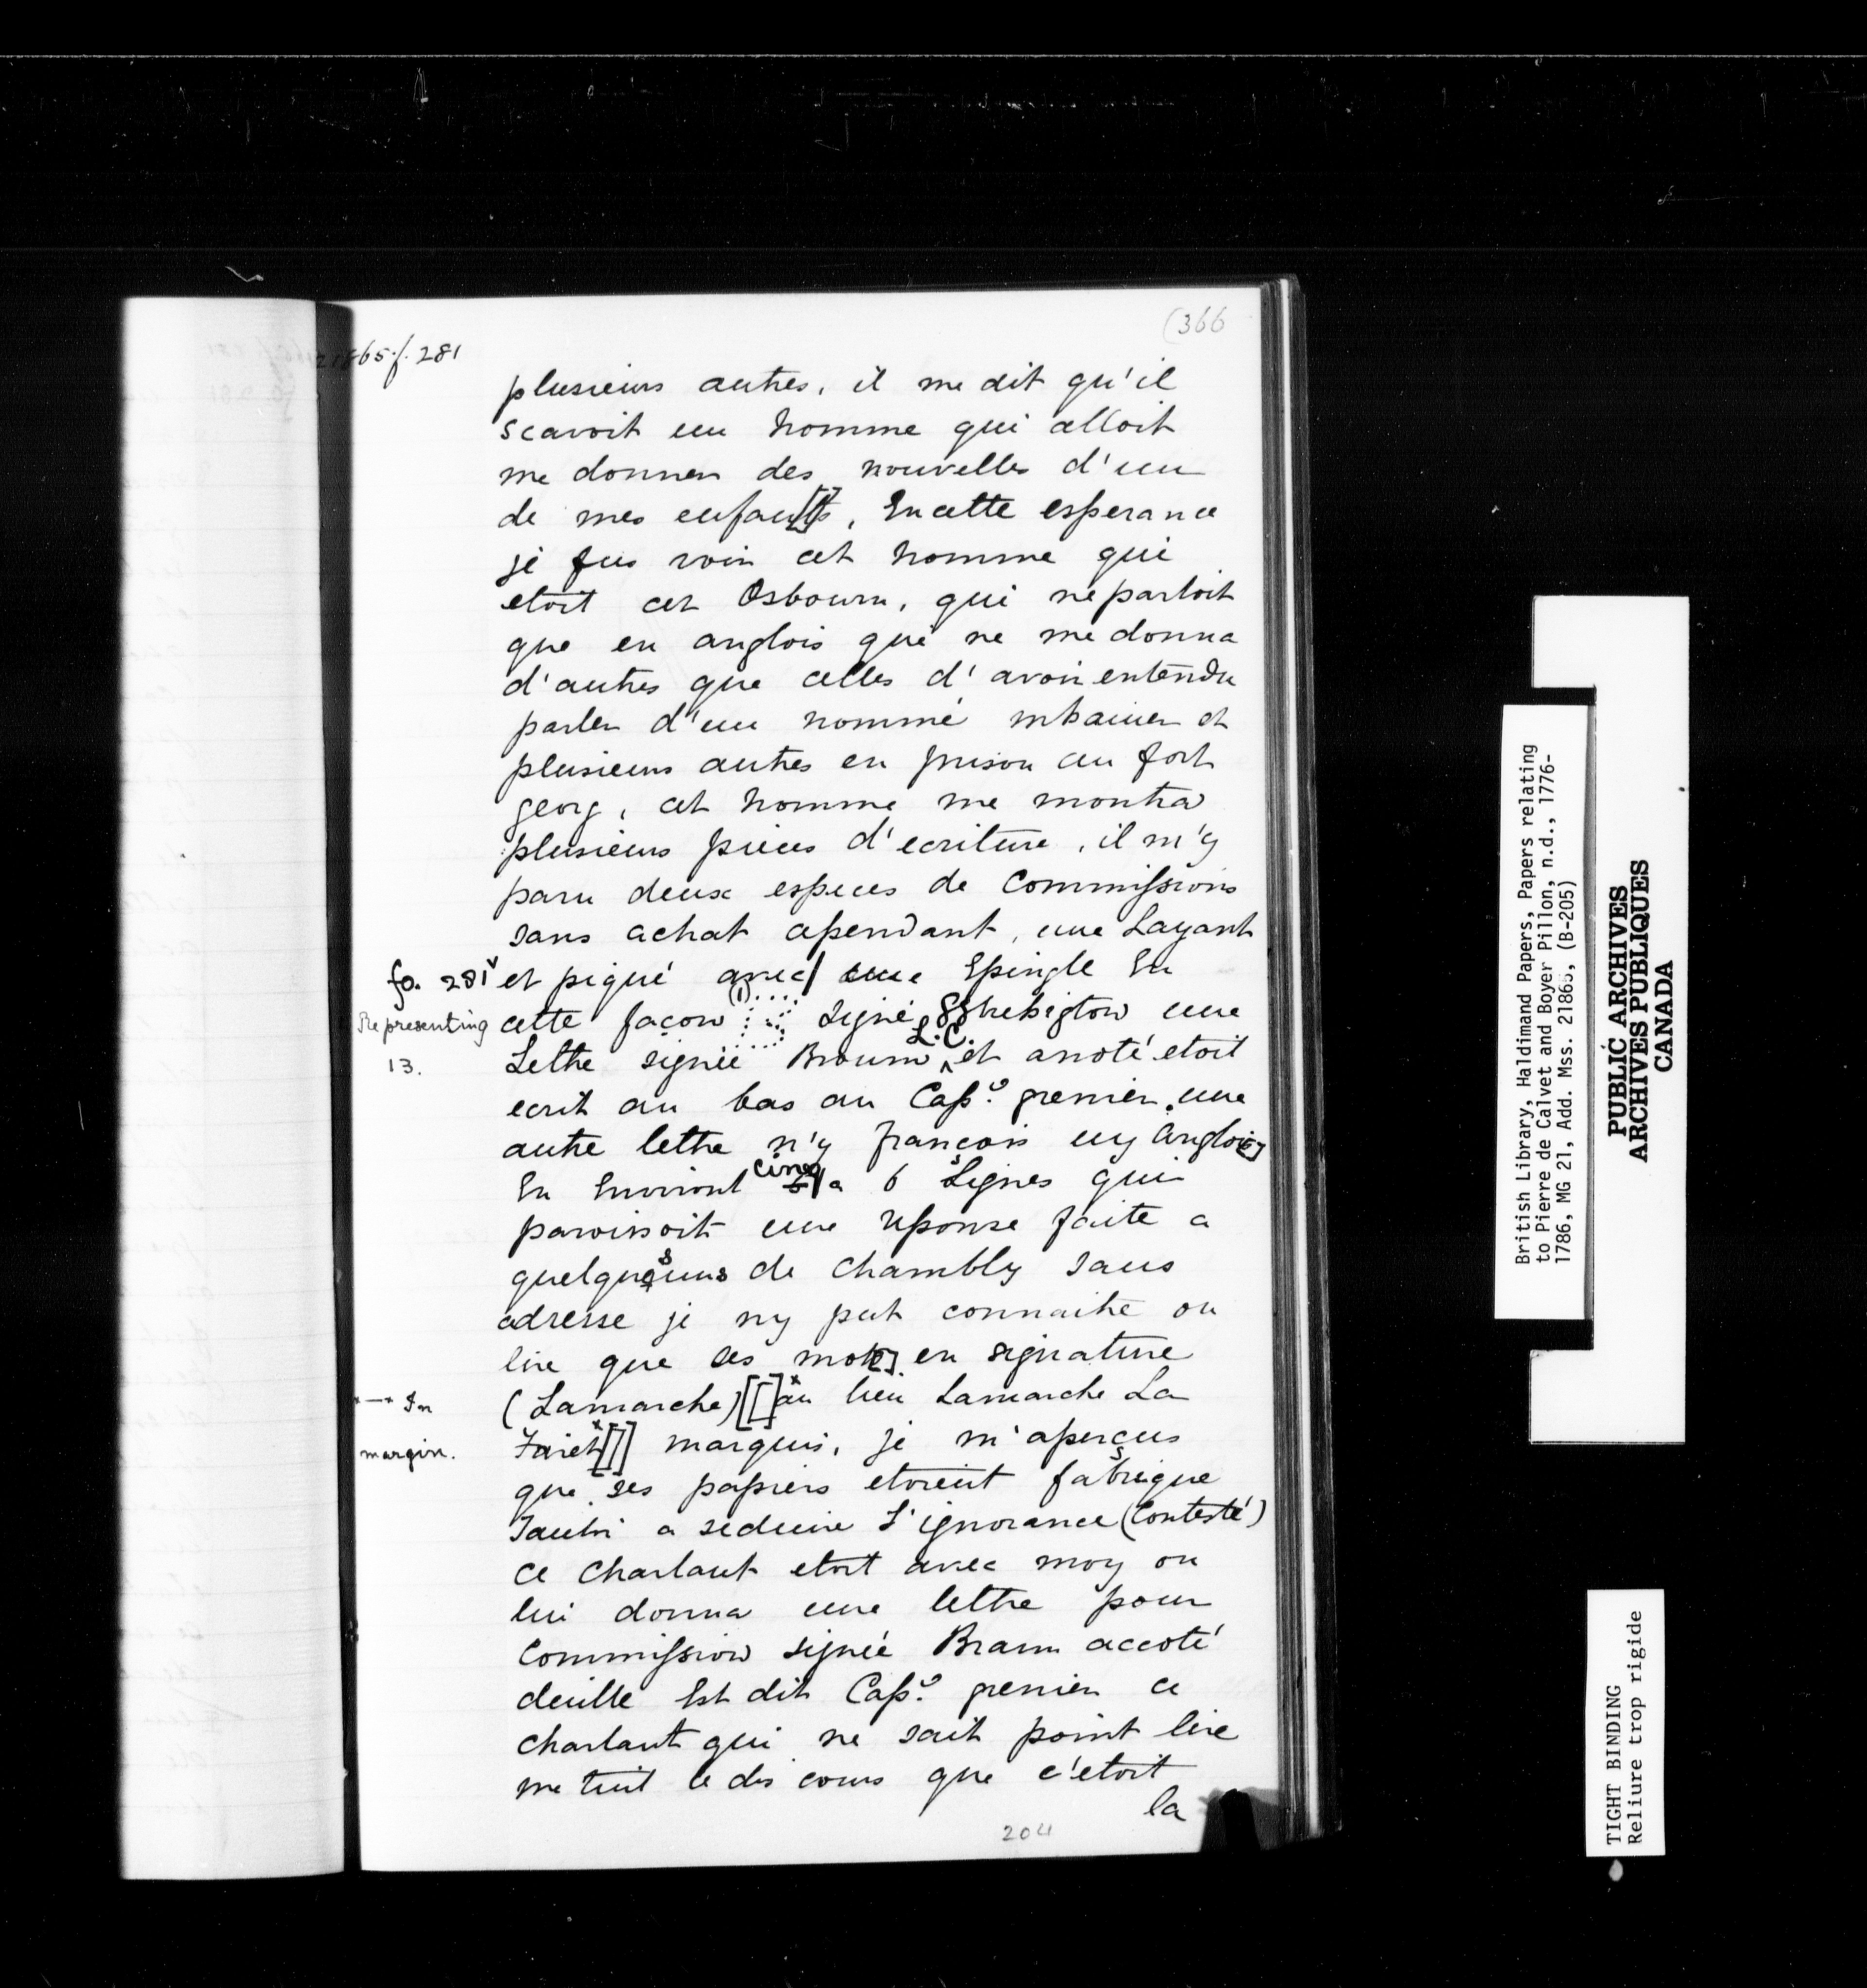 (366
21865.f.281
plusieurs autres, il me dit qu'il
scavoit un homme qui alloit
me donner des nouvelles d'un
de mes enfan[t]s, En cette esperance
je fus voir cet homme qui
etoit cet Osbourn, qui ne parloit
que en anglois qui ne me donna
d'autres que celles d'avoir entendu
parler d'un nommé et
plusieurs autres en prison au fort
georg, cet homme me montra
plusieurs pieces d'ecriture, il m'y
paru deux especes de Commissions
sans achat apendant, une Layant
fo. 281v et piqué avec/ une Epingle En
Representing cette facon (1) Signé une
13. Lettre signée Broum L.C. et anoté etoit
ecrit au bas au Cap.º premier. une
autre lettre n'y francois ny Anglois[]
En Environt cinq a 6 Lignes qui
paroissoit une reponse faite a
quelques uns de Chambly sans
adresse je ny put connaitre ou
lire que ces mot[s] en signature
*—* In (Lamarche) [[]* au lieu Lamarche La
margin. *[]] marquis, je m'apercus
que ses papiers etoient fabrique
a seduire l'ignorance (Contesté)
ce Charlant etoit avec moy on
lui donna une lettre pour
Commission Signée Braun accoté
Est dit Cap.º premier ce
charlant qui ne sait point lire
me tint le dis cours que c'etoit
la
204
British Library, Haldimand Papers, Papers relating
to Pierre de Calvet and Boyer Pillon, n.d., 1776-
1786, MG 21, Add. Mss. 21865, (B-205)
PUBLIC ARCHIVES
ARCHIVES PUBLIQUES
CANADA
TIGHT BINDING
Reliure trop rigide